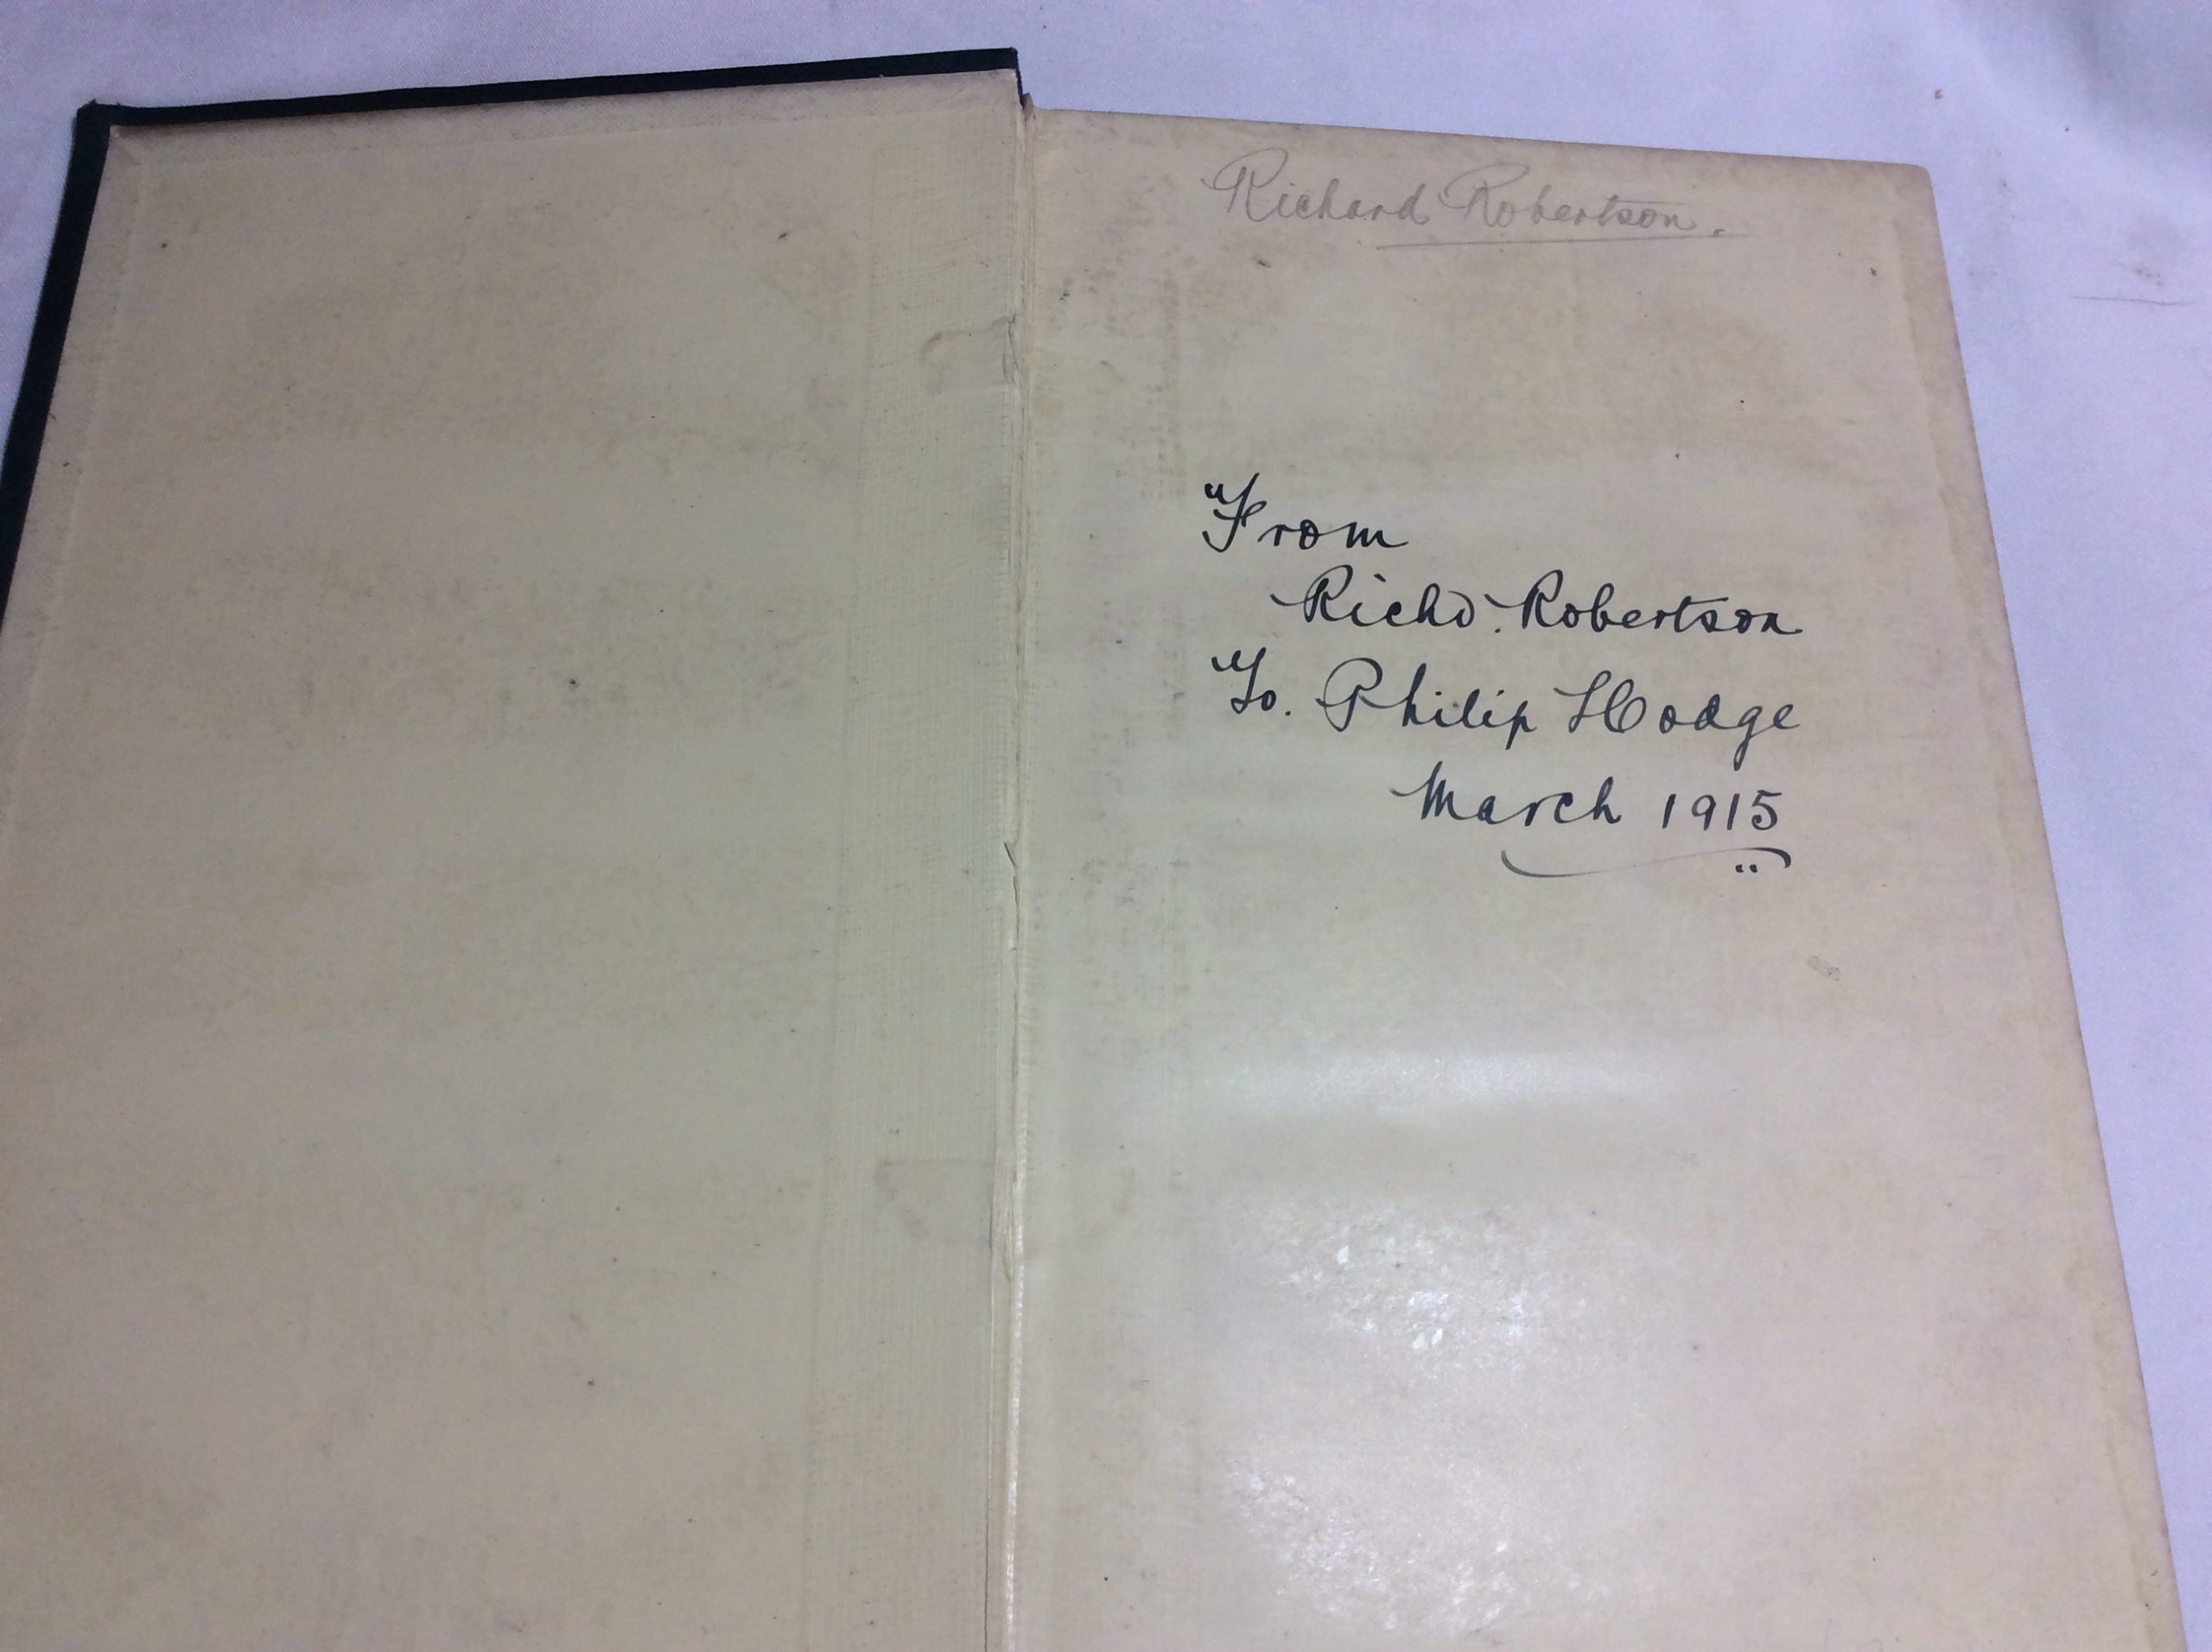 Richard Robertson.
From
Richd. Robertson
To. Philip Hodge
March 1915